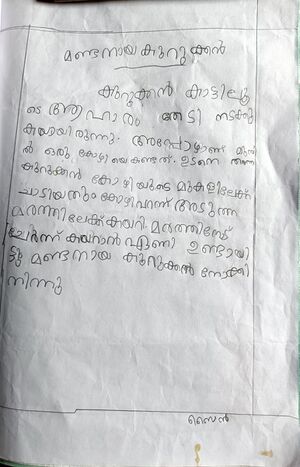 മണ്ടനായ കുറുക്കൻ
കുറുക്കൻ കാട്ടിലൂ
ടെ ആഹാരം തേടി നടക്കു
കയായിരുന്നു. അപ്പോഴാണ് മുന്നി
ൽ ഒരു കോഴിയെ കണ്ടത്. ഉടനെ തന്നെ
കുറുക്കൻ കോഴിയുടെ മുകളിലേക്ക്
ചാടിയതും കോഴി പറന്ന് അടുത്ത
മരത്തിലേക്ക് കയറി. മരത്തിനോട്
ചേർന്ന് കയറാൻ ഏണി ഉണ്ടായി
ട്ടും മണ്ടനായ കുറുക്കൻ നോക്കി
നിന്നു
സൈൻ